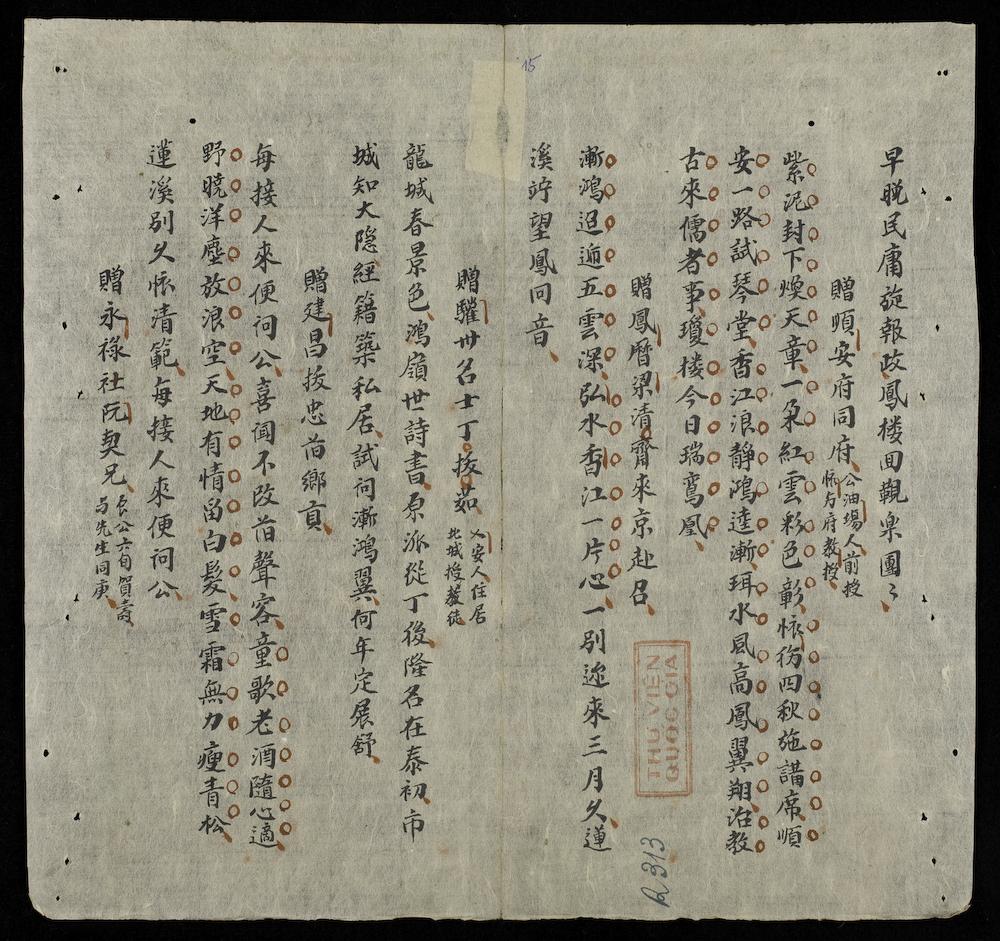 15
早晚民庸旋報政鳳楼回覲楽團〻
贈順安府同府 公油場人前授
懷方府教授
紫泥封下煥天章一朶紅雲彩色彰懷彷四秋施講席順
安一路試琴堂香江浪静鴻逵漸珥水風高鳳翼翔治教
古來儒者事瓊楼今日瑞鸞凰
贈鳳曆梁清齋來京赴召
漸鴻迢遞五雲深弘水香江一片心一別迩來三月久蓮
溪竚望鳳回音
贈驩州名士丁拔茹 乂安人住居
北城授養徒
龍城春景色鴻嶺世詩書原派從丁後隆名在泰初市
城知大隐經籍築私居試问漸鴻翼何年定展舒
贈建昌拔忠甫鄉貢
每接人來便问公喜闻不改旧聲容童歌老酒隨心適
野曉洋塵放浪空天地有情留白髪雪霜無力瘦青松
蓮溪別久懷清範每接人來便问公
贈永祿社阮契兄 良公六旬賀壽
与先生同庚
THƯ VIỆN
QUỐC GIA
R 313